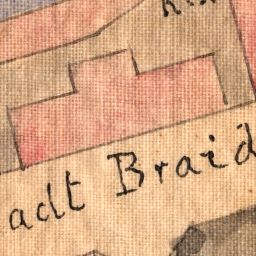 adt Braid